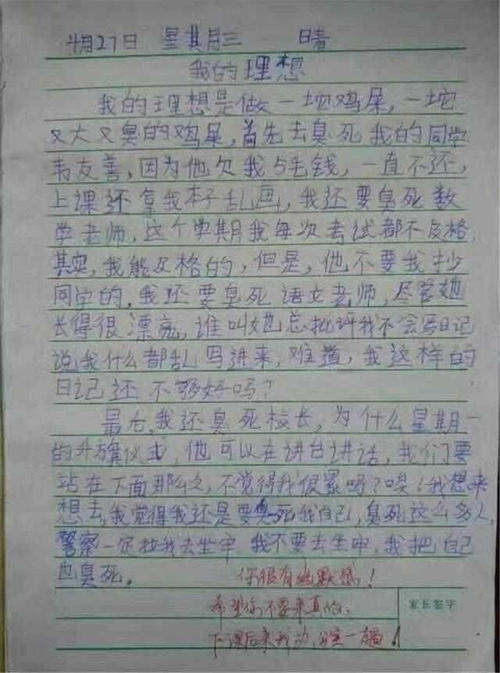 4月27日 星其月三 晴
我的理想
我的理想是做一坨鸡屎,一坨
又大又臭的鸡屎,首先去臭死我的同学
韦友善,因为他欠我5毛钱,一直不还,
上课还拿我本子乱画,我还要臭死数
学老师,这个学期我每次考试都不及格,
其实,我能及格的,但是,他不要我抄
同学的,我还要臭死语文老师,尽管她
长得很漂亮,谁叫她总批评我不会写日记
说我什么都乱写进来,难道,我这样的
日记还不够好吗?
最后,我还臭死校长,为什么星期一
的升旗仪式,他可以在讲台讲话,我们要
站在下面那么久,不觉得我很累吗?唉!我想来
想去,我觉得我还是要臭死我自己,臭死这么多人
警察一定拉我去坐牢 我不要去坐牢,我把自己
也臭死。 你很有幽默感!
希望你不要来真的,
下课后来
家长签字